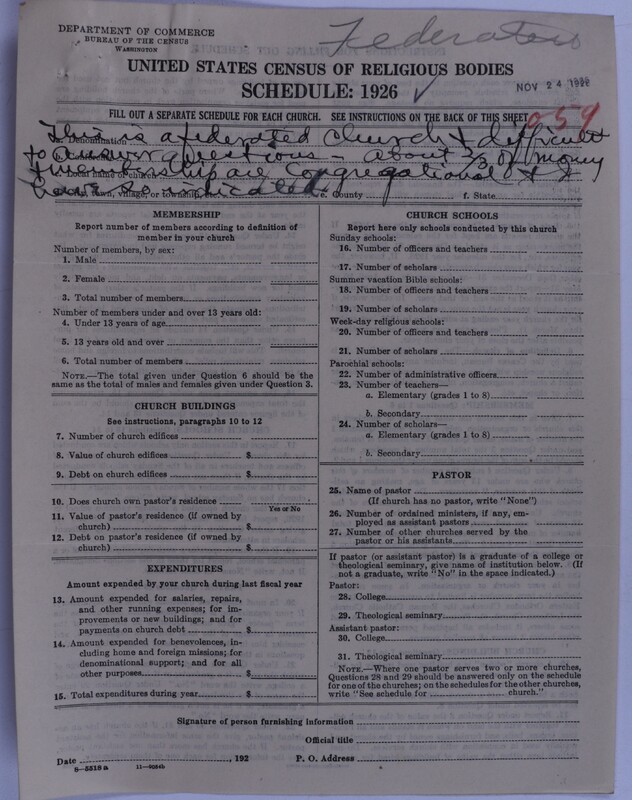 DEPARTMENT OF COMMERCE
BUREAU OF THE CENSUS
WASHINGTON
UNITED STATES CENSUS OF RELIGIOUS BODIES
SCHEDULE: 1926
NOV 24 1926
059
FILL OUT A SEPARATE SCHEDULE FOR EACH CHURCH. SEE INSTRUCTIONS ON THE BACK OF THIS SHEET
This is a federated church & difficult
to answer questions - About 2/3 of money
& membership are Congregational & I
have so indicated.
a. Denomination
County
f. State
MEMBERSHIP
Report number of members according to definition of
member in your church
Number of members, by sex:
1. Male
2. Female
3. Total number of members
Number of members under and over 13 years old:
4. Under 13 years of age
5. 13 years old and over
6. Total number of members
NOTE.—The total given under Question 6 should be
the same as the total of males and females given under Question 3.
CHURCH BUILDINGS
See instructions, paragraphs 10 to 12
7. Number of church edifices
8. Value of church edifices $
9. Debt on church edifices $
10. Does church own pastor's residence
Yes or No
11. Value of pastor's residence (if owned by
church) $
12. Debt on pastor's residence (if owned by
church) $
EXPENDITURES
Amount expended by your church during last fiscal year
13. Amount expended for salaries, repairs,
and other running expenses; for im-
provements or new buildings; and for
payments on church debt $
14. Amount expended for benevolences, in-
cluding home and foreign missions; for
denominational support; and for all
other purposes $
15. Total expenditures during year $
CHURCH SCHOOLS
Report here only schools conducted by this church
Sunday schools:
16. Number of officers and teachers
17. Number of scholars
Summer vacation Bible schools:
18. Number of officers and teachers
19. Number of scholars
Week-day religious schools:
20. Number of officers and teachers
21. Number of scholars
Parochial schools:
22. Number of administrative officers
23. Number of teachers—
a. Elementary (grades 1 to 8)
b. Secondary
24. Number of scholars—
a. Elementary (grades 1 to 8)
b. Secondary
PASTOR
25. Name of pastor
(If church has no pastor, write "None")
26. Number of ordained ministers, if any, em-
ployed as assistant pastors
27. Number of other churches served by the
pastor or his assistants
If pastor (or assistant pastor) is a graduate of a college or
theological seminary, give name of institution below. (If
not a graduate, write "No" in the space indicated.)
Pastor:
28. College
29. Theological seminary
Assistant pastor:
30. College
31. Theological seminary
NOTE.—Where one pastor serves two or more churches,
Questions 28 and 29 should be answered only on the schedule
for one of the churches; on the schedules for the other churches,
write "See schedule for church."
Signature of person furnishing information
Official title
Date , 192 P. O. Address
8—5518 a